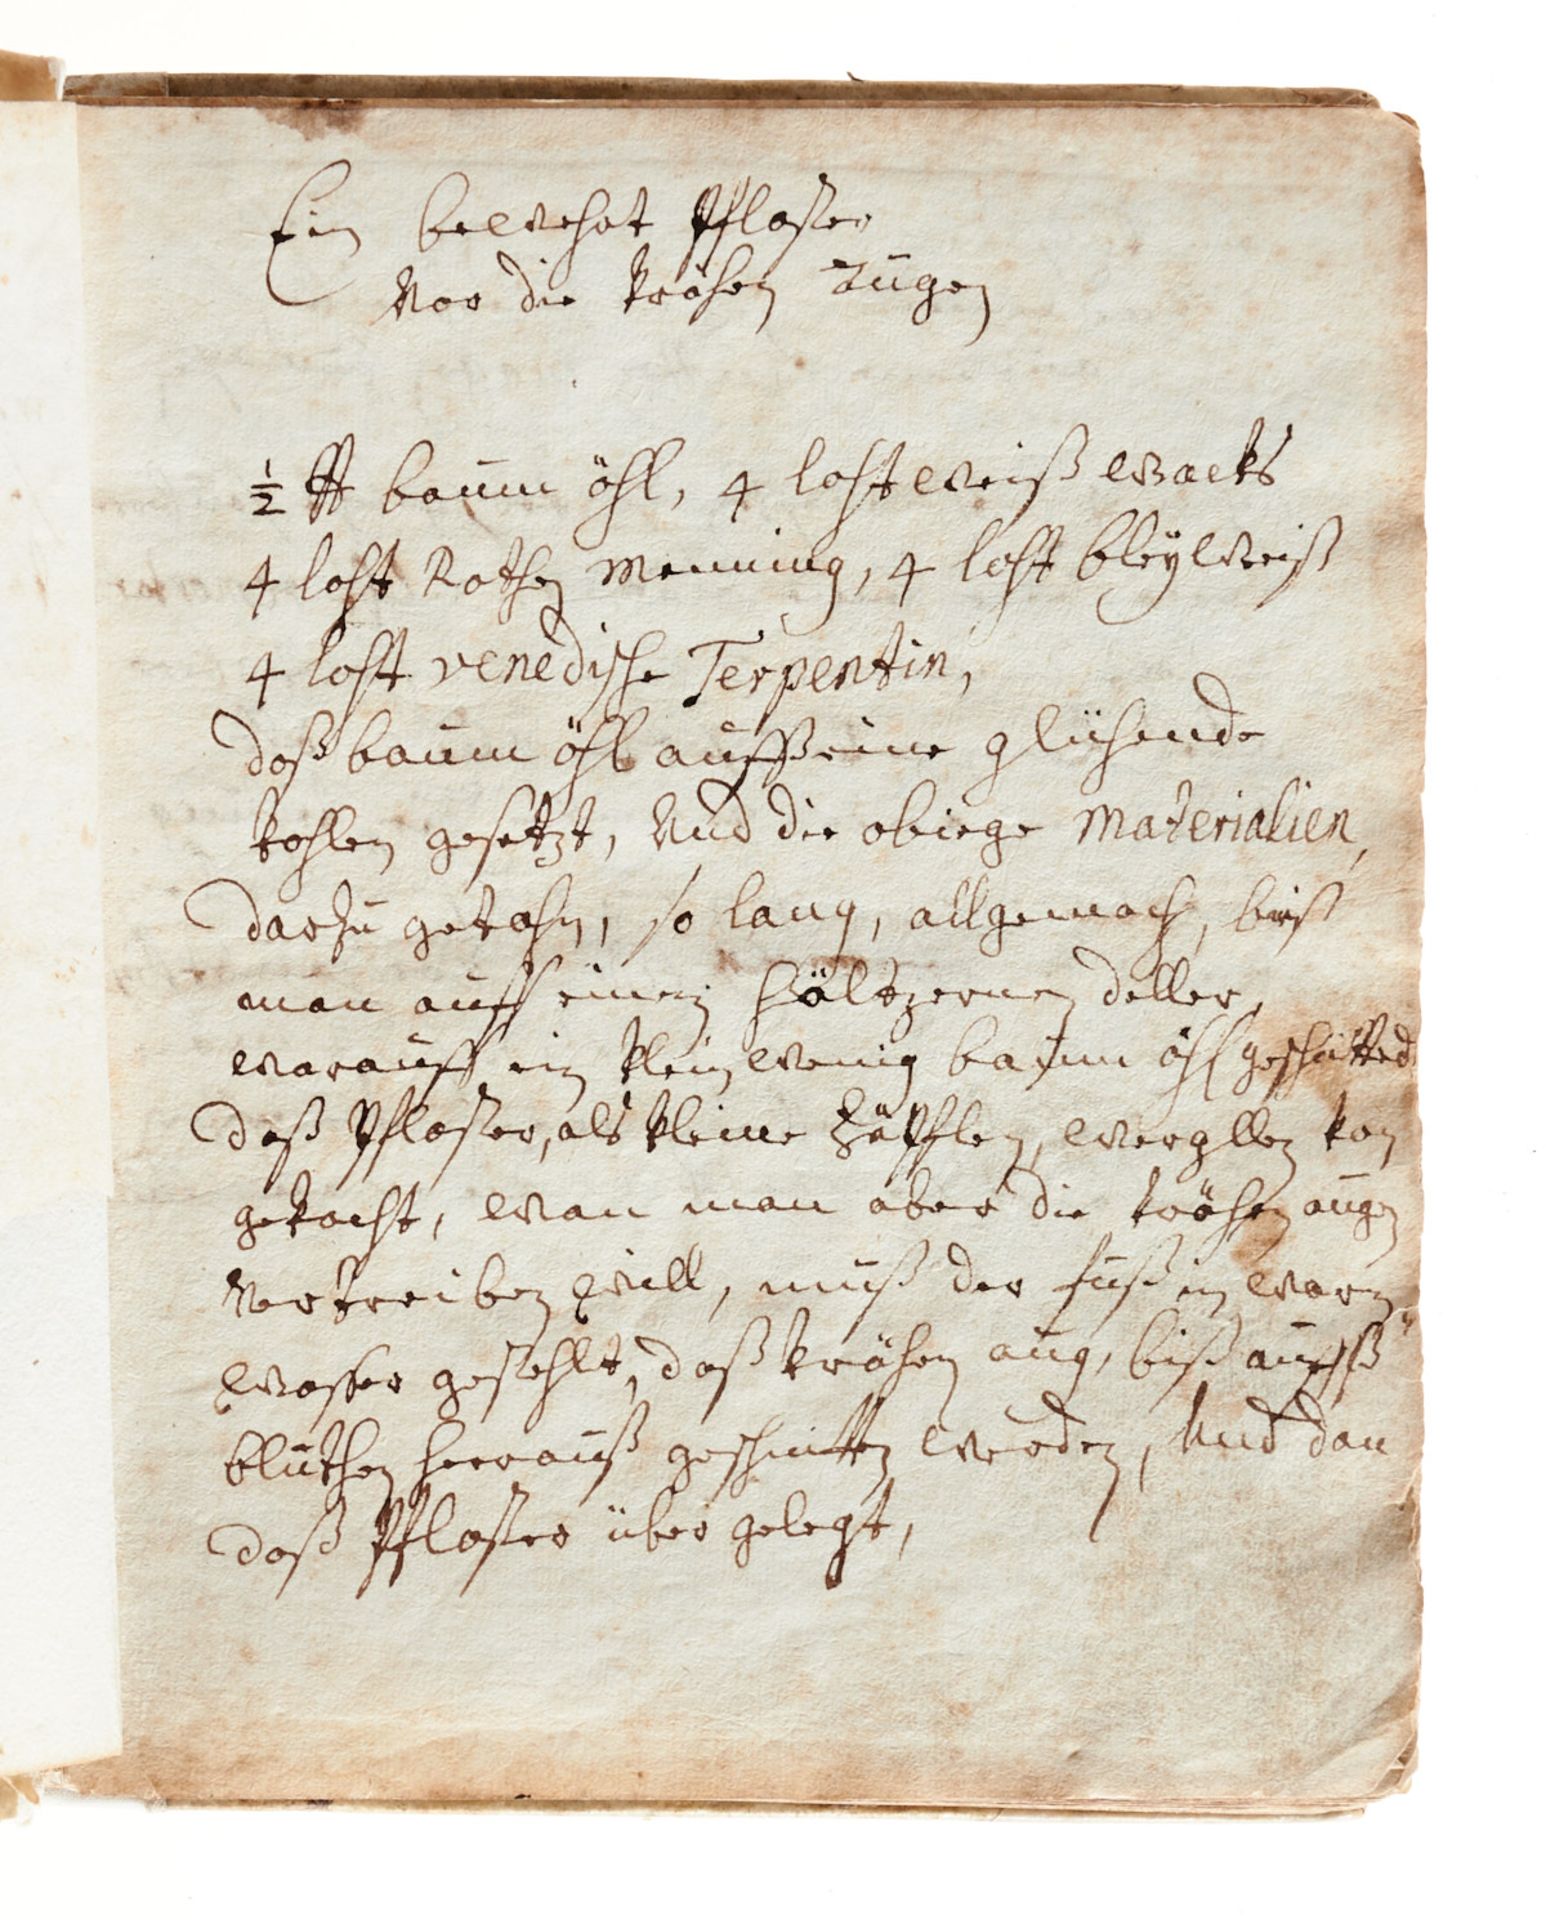 Ein bewehrt Pflaster
Vor die krähen Augen
½ ℔ baum öhl, 4 loht weiß wacks
4 loht Rothen Menning, 4 loht bleyweiß
4 loht venedische Terpentin,
daß baum öhl auffß eine glühende
kohlen gesetzt, Und die obiege Materialien,
darzu getahn, so lang, allgemach, biß
man auff einen höltzernen deller,
warauff ein klein wenig baum öhl geschütted
daß Pflaster, als kleine Zäpflen, wergllen kan
gekocht, wan man aber die krähen augen
Vertreiben will, muß der fuß in warm
wasser gesehlt, daß krähen aug, biß auffß
bluthen herauß geschnitten werden, Und dan
daß Pflaster über gelegt,